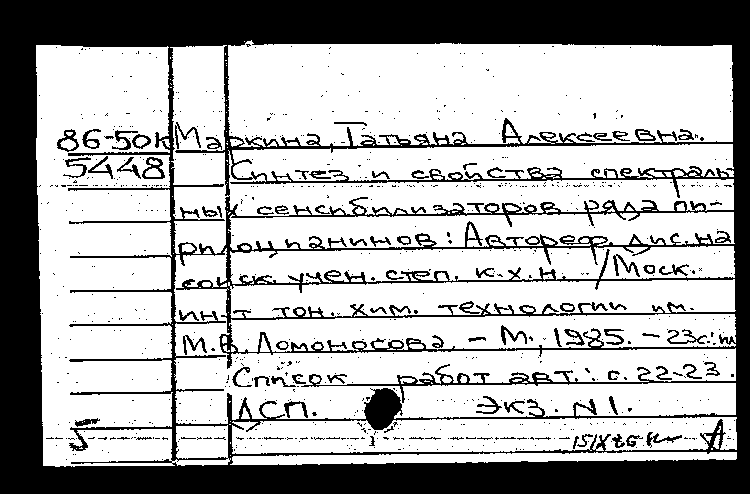 86-50к Маркина, Татьяна Алексеевна.
5448 Синтез и свойства спектраль-
ных сенсибилизаторов ряда пи-
рилоцианинов: Автореф. дис. на
соиск. учен. степ. к.х.н. /Моск.
ин-т тон. хим. технологии им.
М.В. Ломоносова. – М., 1985. – 23с.: ил
Список работ авт.: с. 22-23.
ДСП. Экз. N 1.